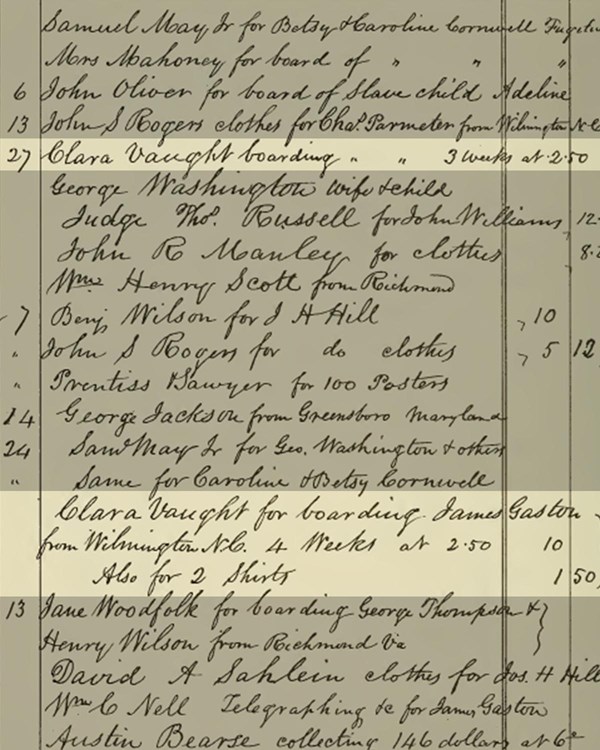 Samuel May Jr for Betsy & Caroline Cornwell
Mrs Mahoney for board of " " "
6 John Oliver for board of Slave child Adeline
13 John S Rogers clothes for Chas. Parmeter from Wilmington N.C
27 Clara Vaught boarding " " 3 weeks at 2.50
George Washington wife & child
Judge Thos. Russell for John Williams 12
John R Manley for clothes 8.
Wm Henry Scott from Richmond
7 Benj Wilson for J H Hill , 10
" John S Rogers for do clothes , 5 12
" Prentiss & Sawyer for 100 Posters
14 George Jackson from Greensboro Maryland
24 Saml May Jr for Geo. Washington & others
" Same for Caroline & Betsy Cornwell
Clara Vaught for boarding James Gaston
from Wilmington N.C. 4 Weeks at 2.50 10
Also for 2 Shirts 1 50
13 Jane Woodfolk for boarding George Thompson & }
Henry Wilson from Richmond Va
David A Sahlein clothes for Jos. H Hill
Wm C Nell Telegraphing &c for James Gaston
Austin Bearse collecting 146 dollars at 6c